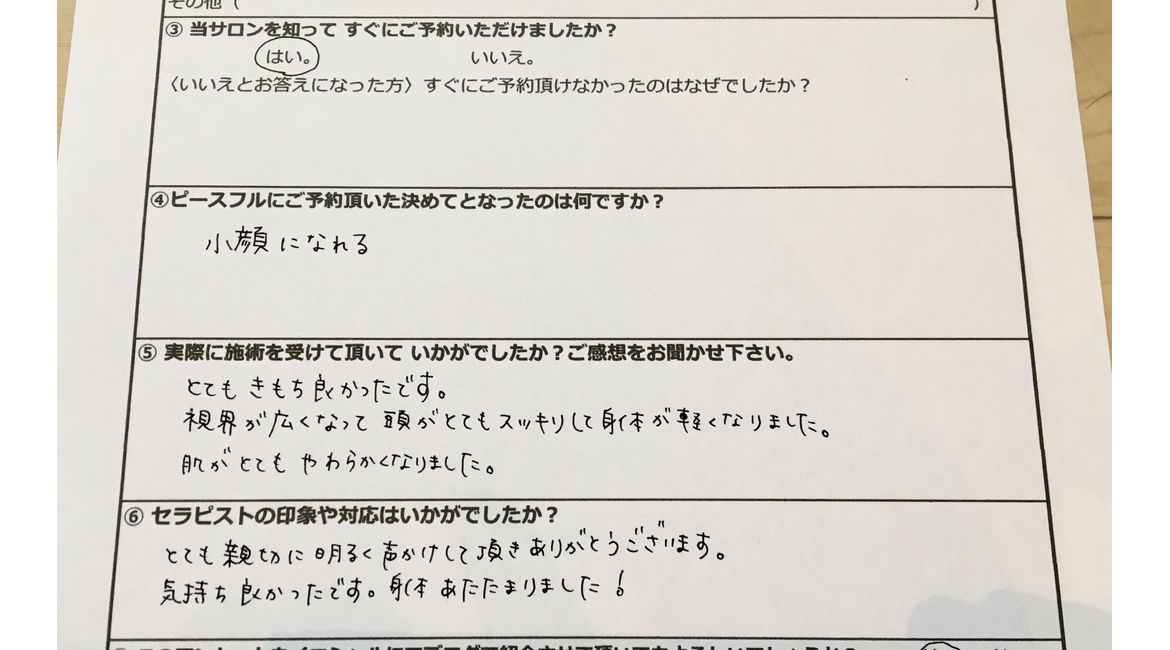 その他（　　　）
③ 当サロンを知って すぐにご予約いただけましたか？
はい。　いいえ。
〈いいえとお答えになった方〉すぐにご予約頂けなかったのはなぜでしたか？
④ピースフルにご予約頂いた決めてとなったのは何ですか？
小顔になれる
⑤ 実際に施術を受けて頂いて いかがでしたか？ご感想をお聞かせ下さい。
とても きもち良かったです。
視界が広くなって 頭がとてもスッキりして身体が軽くなりました。
肌がとても やわらかくなりました。
⑥ セラピストの印象や対応はいかがでしたか？
とても 親切に 明るく 声かけして頂き ありがとうございます。
気持ち良かったです。身体 あたたまりました！